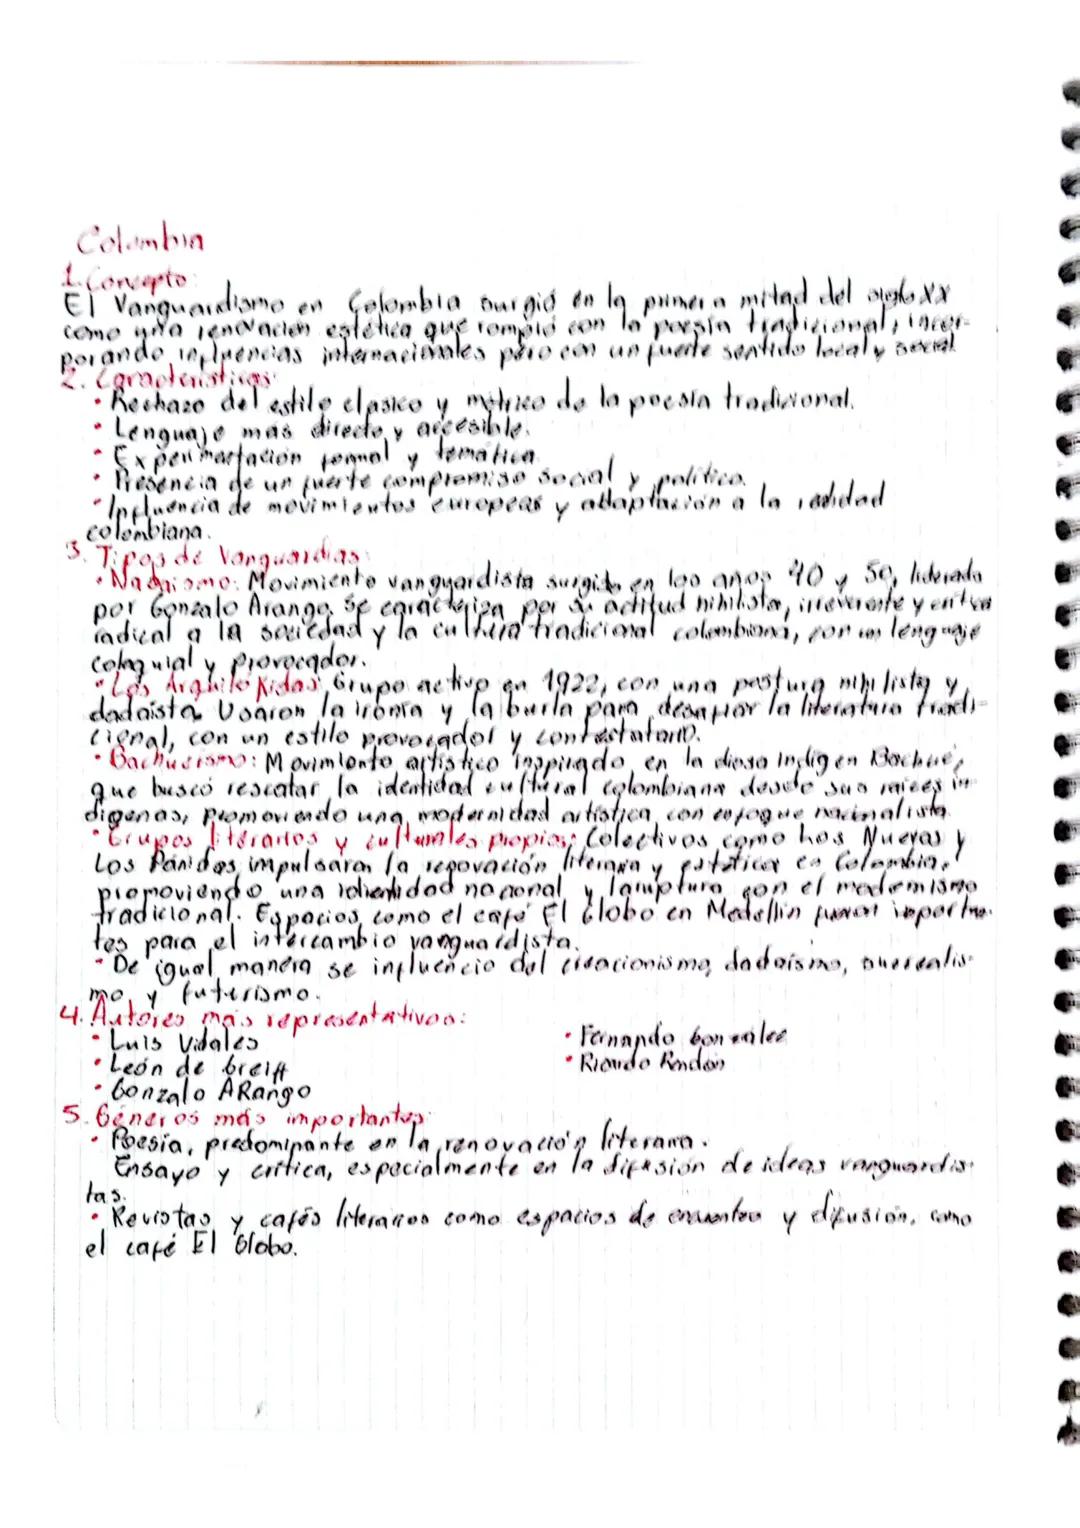 Colombia
1. Concepto:
El Vanguardismo en Colombia surgió en la primera mitad del siglo XX
como una renovación estética que rompió con la poesía tradicional, incor-
porando influencias internacionales pero con un fuerte sentido local y social.
2. Características:
• Rechazo del estilo clásico y métrico de la poesía tradicional.
• Lenguaje más directo y accesible.
• Experimentación formal y temática.
• Presencia de un fuerte compromiso social y político.
• Influencia de movimientos europeas y adaptación a la realidad
colombiana.
3. Tipos de Vanguardias:
• Nadaismo: Movimiento vanguardista surgido en los años 40 y 50, liderada
por Gonzalo Arango. Se caracteriza por su actitud nihilista, irreverente y
radical a la sociedad y la cultura tradicional colombiana, con un lenguaje
coloquial y provocador.
• Los Arquilokidas: Grupo activo en 1922, con una postura nihilista y
dadaista. Usaron la ironía y la burla para desafiar la literatura tradi-
cional, con un estilo provocador y contestatario.
• Bachuismo: Movimiento artístico inspirado en la diosa indígen Bachué,
que buscó rescatar la identidad cultural colombiana desde sus raíces in-
digenas, promoviendo una modernidad artística con enfoque nacionalista.
• Grupos literarios y culturales propios: Colectivos como Los Nuevos y
Los Pánidas impulsaron la renovación literaria y estética en Colombia,
promoviendo una identidad nacional y la ruptura con el modernismo
tradicional. Espacios como el café El Globo en Medellín fueron importan-
tes para el intercambio vanguardista.
• De igual manera se influencio del creacionismo, dadaísmo, surrealis-
mo, y futurismo.
4. Autores más representativos:
• Luis Vidales
• León de breiff
• Gonzalo ARango
• Fernando Gonzalez
• Ricardo Rendón
5. Géneros más importantes:
• Poesía, predominante en la renovación literaria.
Ensayo y crítica, especialmente en la difusión de ideas vanguardis-
tas.
• Revistas y cafés literarios como espacios de encuentro y difusión, como
el café El Globo.